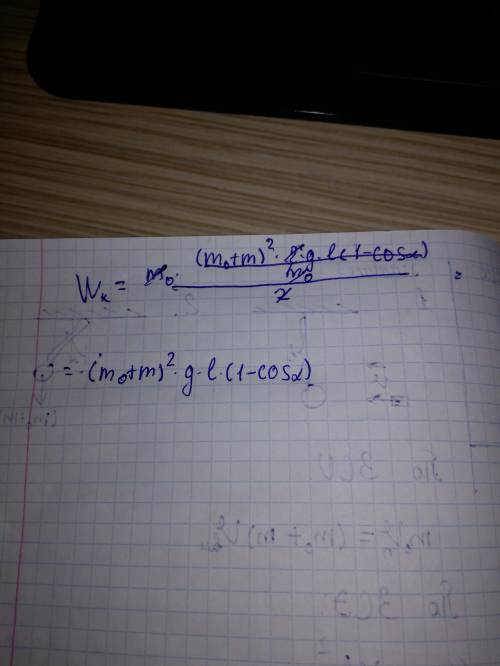 Wк = m₀ · (m₀+m)² · 2·g·l(1-cosα) / m₀ / 2 =
= (m₀+m)² · g · l · (1-cosα)